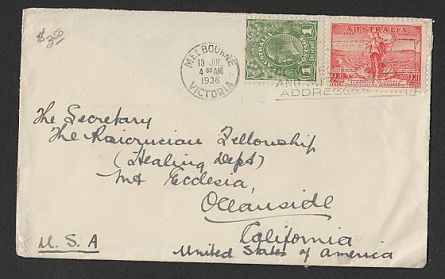 $3.50
MELBOURNE
13 JUL
4 30 AM
1936
VICTORIA
AUSTRALIA
AND
ADDRESS
The Secretary
The Rosicrucian Fellowship
(Healing Dept)
Mt Ecclesia,
Oceanside
California
U.S.A
United States of America